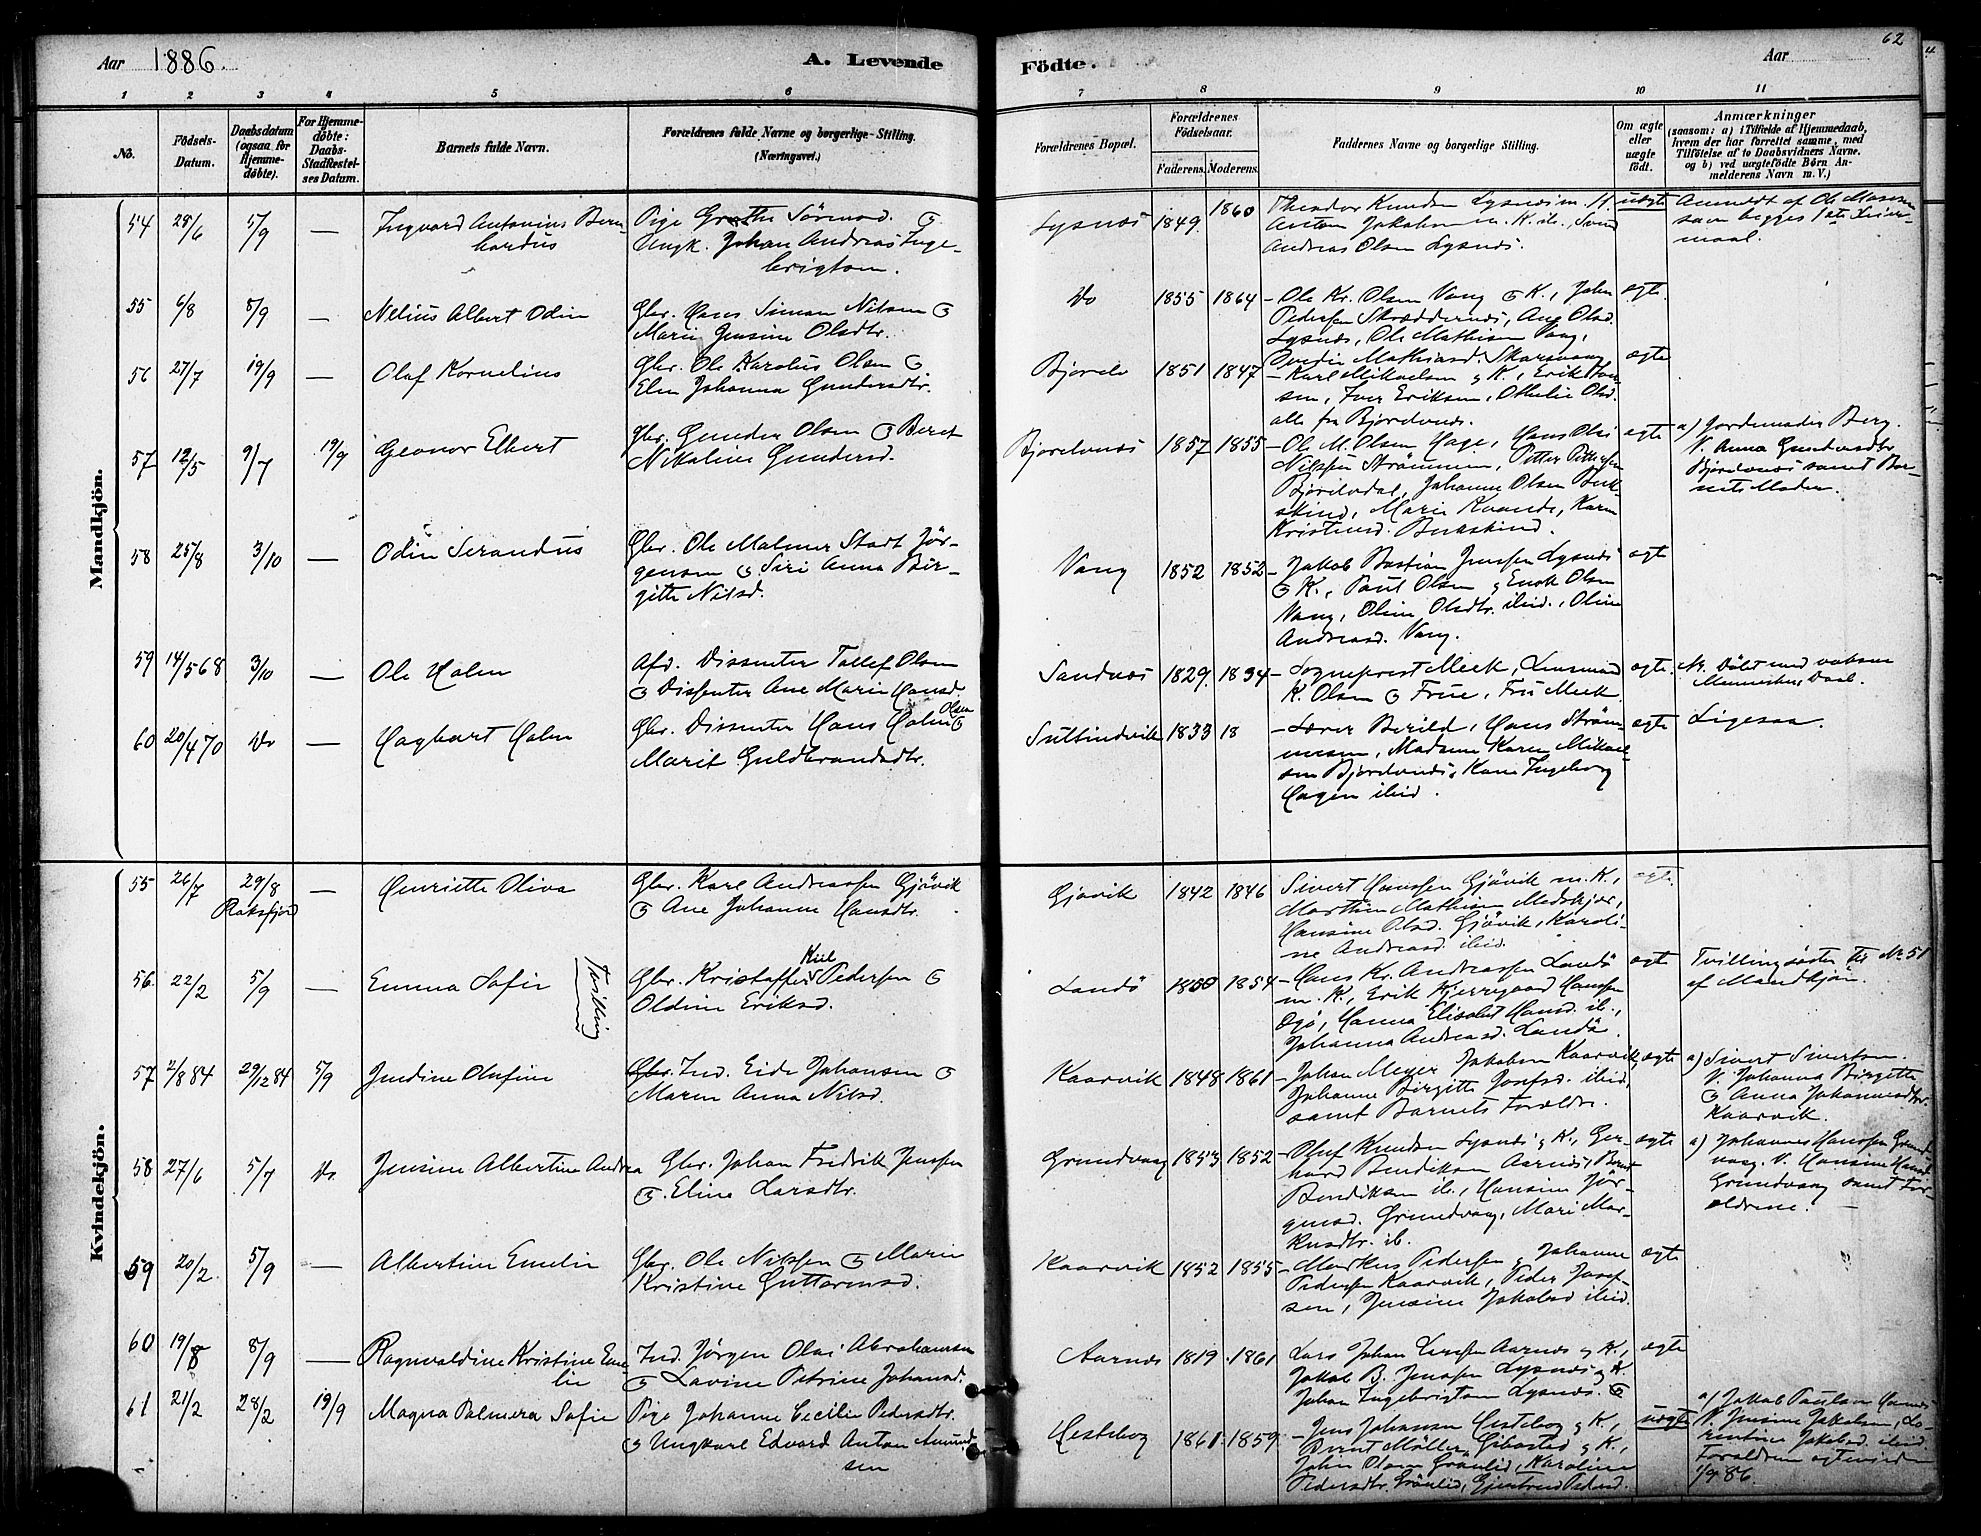 Aar 1886.
A. Levende Födte.
Aar
62
1 2 3 4 5 6 7 8 9 10 11
No.
Födsels-Datum.
Daabsdatum (ogsaa for Hjemmedöbte).
For Hjemmedöbte: Daabs-Stadfæstelses Datum.
Barnets fulde Navn.
Forældrenes fulde Navne og borgerlige Stilling. (Næringsvei.)
Forældrenes Bopæl.
Forældrenes Födselsaar.
Faderens. Moderens.
Faddernes Navne og borgerlige Stilling.
Om ægte eller uægte födt.
Anmærkninger
(saasom: a) i Tilfælde af Hjemmedaab, hvem der har forrettet samme, med Tilföielse af to Daabsvidners Navne. og b) ved uægtefödte Börn Anmelderens Navn m. V.)
Mandkjön.
54 28/6 5/9 — Ingvard Antonius Bern-
hardus
Pige Grethe Sörensd. &
Ungk. Johan Andreas Inge-
brigtsen.
Lysnæs 1849. 1860
Theodor Knudsen Lysnæs m. H.
Anton Jakobsen m. K. ib.,
Andreas Olsen Lysnæs.
uægte
Anmeldt af Ole
som begges 1ste Leier-
maal.
55 6/8 5/9 — Nelius Albert Odin
Gbr. Hans Simon Nilsen &
Marie Jensine Olsdtr.
Do 1855 1864
— Ole Kr. Olsen Vang & K., John
Pedersen Skræddernes, Ane Olsd.
Lysnæs, Ole Mathisen Vang,
Mathiasd. Skarsvaag
ægte.
56 27/7 19/9 — Olaf Kornelius
Gbr. Ole Karolus Olsen &
Elen Johanna Gundersdtr.
Bjorelv 1851 1847
— Karl Mikaelsen & K., Erik Iver-
sen, Iver Eriksen, Othelie Olsd.
alle fra Bjorelvnes.
ægte
57 12/5 9/7 19/9 Geonor Elbert
Gbr. Gunder Olsen & Beret
Nikoline Gundersd.
Bjorelvnæs 1857 1855
— Ole M. Olsen Hage, Hans Olai
Nilssen Strömmen, Petter Pettersen
Bjorelvdal, Johanne Olsen Buk-
skind, Marie Kaarids, Karen
Kristensd. Bukskind.
ægte
a) Jordemoder Berg.
V. Anna Gundersdtr
Bjorelvnæs samt Bar-
nets Moder.
58 25/8 3/10 — Odin Serandus
Gbr. Ole Malmer Stadt Jör-
gensen & Siri Anna Bir-
gitte Nilsd.
Vang 1852 1852
— Jakob Bastian Jenssen Lysnæs
& K., Paul Olsen & Enok Olsen
Vang, Oline Olsdtr. ibid., Oline
Andreasd. Vang.
ægte
59 14/5 68 3/10 — Ole Holm
Afd. Dissenter Tollef Olsen
& Dissenter Ane Marie Hansd.
Sandnæs 1829. 1834
— Sogneprest Meek, Lensmand
K. Olsen & Frue, Fru Meek
ægte.
Nr. Döbt med voksne
Menneskers Daab.
60 20/4 70 Do — Hagbart Holm
Gbr. Dissenter Hans Holm Olsen &
Marit Guldbrandsdtr.
Sultindvik 1833 18
— Lærer Berild, Hans Ström-
mesen, Madame Karen Mikael-
sen Bjorelvnæs, Karen Ingeborg
Hagen ibid.
ægte
Ligesaa.
Kvindekjön.
55 26/7 29/8 Roksfjord — Henriette Oliva
Gbr. Karl Andreassen Gjövik
& Ane Johanna Hansdtr.
Gjövik 1842 1846
Sivert Hanssen Gjövik m. K.,
Marthin Mathisen Medskjær,
Hansine Olsd. Gjövik, Karoli-
ne Andreasd. ibid.
ægte.
56. 22/2 5/9 — Emma Sofie Tvilling
Gbr. Kristoffer Kiil Pedersen &
Oldine Eriksd.
Landö 1850 1854
— Hans Kr. Andreassen Landö
m. K., Erik Kjerregaard Hanssen
Ogö, Hanna Elisabet Hansd. ib.,
Johanna Andreasd. Landö.
ægte
Tvillingsöster til No 51
af Mandkjön.
57 2/8 84 29/12 84 5/9 Jendine Olufine
Gbr. Ind. Eide Johansen &
Maren Anna Nilsd.
Kaarvik 1848 1861
— Johan Meyer Jakobsen Kaarvik,
Johanne Birgitte Josefsd. ibid,
samt Barnets Forældre.
ægte
a) Sivert Sivertsen.
V. Johanna Birgitte
& Anna Johannesdtr.
Kaarvik.
58 27/6 5/7 Do. Jensine Albertine Andrea
Gbr. Johan Fredrik Jenssen
& Eline Larsdtr.
Grundvaag 1853 1852
— Oluf Knudsen Lysnæs & K., Ger-
hard Bendiksen Aarnæs, Bernt
Bendiksen ib., Hansine Jör-
gensd. Grundvaag, Mari Mar-
kusdtr. ib.
ægte
a) Johannes Hanssen Grund-
vaag. V. Hansine Hansd
Grundvaag samt For-
ældrene.
59 20/2. 5/9 — Albertine Emelie
Gbr. Ole Nilssen & Marie
Kristine Guttormsd.
Kaarvik 1852 1855
— Markus Pedersen & Johanne
Pedersen Kaarvik, Peder Josef-
sen, Jensine Jakobsd ibid.
ægte
60 19/8 8/9 — Ragnvaldine Kristine Eme-
lie
Ind. Jörgen Olai Abrahamsen
& Lavine Petrine Johansd.
Aarnæs 1819. 1861
Lars Johan Larssen Aarnæs & K.,
Jakob B. Jenssen Lysnæs & K.
Johan Ingebrigtsen Lysnæs. &
ægte
61 21/2 28/2 19/9 Magna Palmera Sofie
Pige Johanne Cecilie Pedersdtr.
& Ungkarl Edvard Anton Amund-
sen
Hestebog 1861. 1859
— Jens Johansen Hestebog & K.,
Bernt Möller Gibostad & K.,
John Olsen Grönlid, Karoline
Pedersdtr. Grönlid, Gjertrud Pedersd.
uægte
a) Jakob Paulsen
V. Jensine Jakobsen, La-
rentine Jakobsd. ibid.
Forældrene ægteviede
1/9 86.